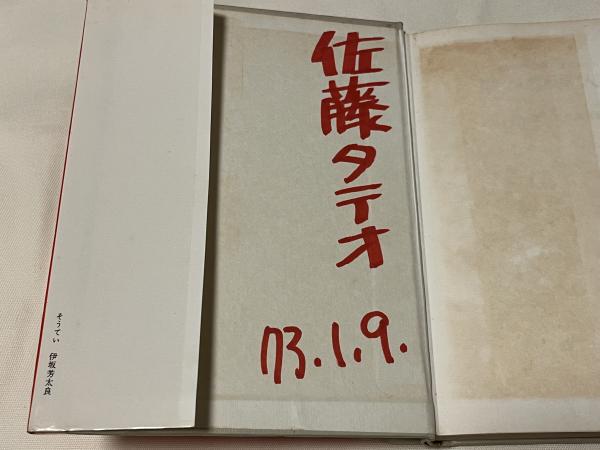 佐藤タテオ
73.1.9.
そうてい 伊坂芳太良